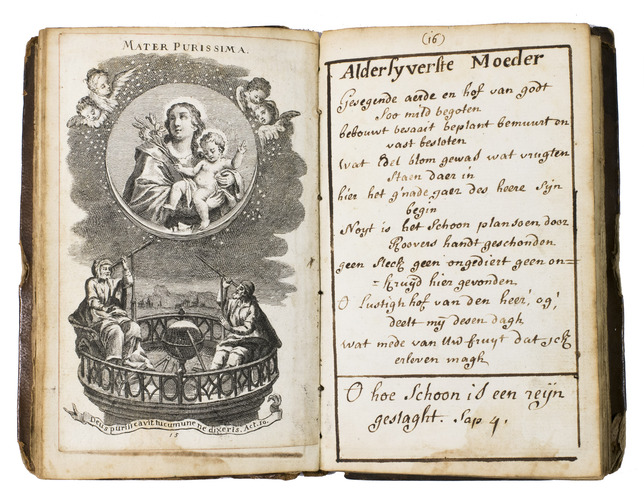 MATER PURISSIMA.
Deus purificavit tu comune ne dixeris. Act. 10.
15
(16)
Aldersyverste Moeder
Gesegende aerde en hof van godt
Soo mild begoten
bebouwt besaait beplant bemuurt en
vast besloten
Wat Edel blom gewas wat vrugten
staen daer in
hier het g'nade jaer des heere sijn
begin
Noyt is het Schoon plansoen door
Roovers handt geschonden
geen Steck geen ongediert geen on=
=kruyd hier gevonden
O Lustigh hof van den heer, og,
deelt mij desen dagh
wat mede van Uw fruyt dat ick
erleven magh
O hoe Schoon is een reijn
geslaght. Sap 4.